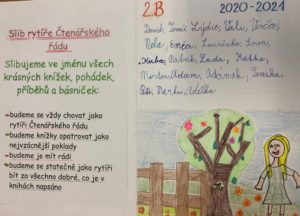 Slib rytíře Čtenářského
řádu
Slibujeme ve jménu všech
krásných knížek, pohádek,
příběhů a básniček:
•budeme se vždy chovat jako
rytíři Čtenářského řádu
•budeme knížky opatrovat jako
nejvzácnější poklady
•budeme je mít rádi
•budeme se statečně jako rytíři
bít za všechno dobré, co je v
knihách napsáno
2.B 2020-2021
David, Tomáš, Lydie, Vali,
Nela, Laurinka, Šimon,
Kuba, Ludvík, Lada,
Adam, Terezka,
Adélka